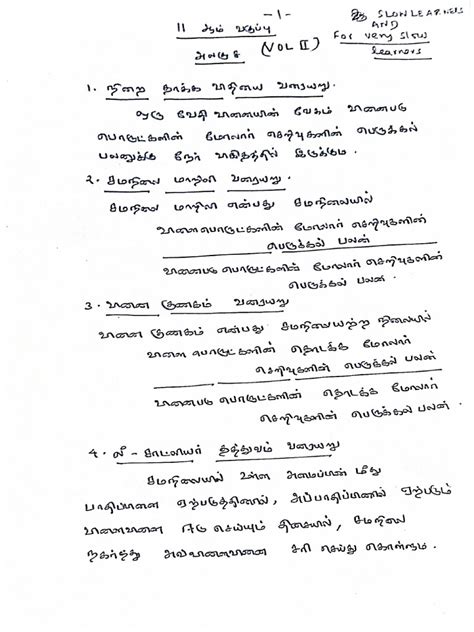 -1-
11 ஆம் வகுப்பு
அலகு 8 (VOL II)
SLOW LEARNERS
AND
For very slow
learners
1. நிறை தாக்க விதியை வரையறு.
ஒரு வேதி வினையின் வேகம் வினைபடு
பொருட்களின் மோலார் செறிவுகளின் பெருக்கல்
பலனுக்கு நேர் விகிதத்தில் இருக்கும்.
2. சமநிலை மாறிலி வரையறு.
சமநிலை மாறிலி என்பது சமநிலையில்
வினைபொருட்களின் மோலார் செறிவுகளின்
பெருக்கல் பலன்
வினைபடு பொருட்களின் மோலார் செறிவுகளின்
பெருக்கல் பலன்.
3. வினை குணகம் வரையறு
வினை குணகம் என்பது சமநிலையற்ற நிலையில்
வினை பொருட்களின் தொடக்க மோலார்
செறிவுகளின் பெருக்கல் பலன்
வினைபடு பொருட்களின் தொடக்க மோலார்
செறிவுகளின் பெருக்கல் பலன்.
4. லீ - சாட்லியர் தத்துவம் வரையறு
சமநிலையில் உள்ள அமைப்பின் மீது
பாதிப்பினை ஏற்படுத்தினால், அப்பாதிப்பினால் ஏற்படும்
விளைவினை ஈடு செய்யும் திசையில், சமநிலை
நகர்ந்து அவ்விளைவினை சரி செய்து கொள்ளும்.